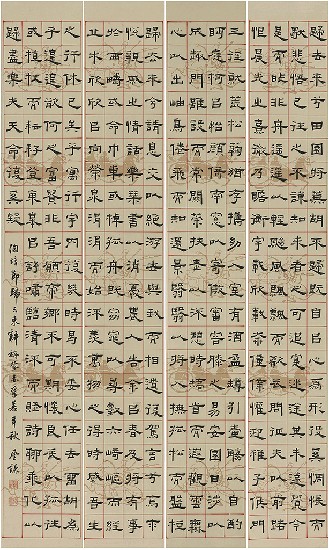 歸去來兮田園將蕪胡不歸既自以心為形役奚惆悵而
獨悲悟已往之不諫知來者之可追實迷途其未遠覺今
是而昨非舟遙遙以輕颺風飄飄而吹衣問征夫以前路
恨晨光之熹微乃瞻衡宇載欣載奔僮僕歡迎稚子候門
三徑就荒松菊猶存攜幼入室有酒盈樽引壺觴以自酌
眄庭柯以怡顏倚南窗以寄傲審容膝之易安園日涉以
成趣門雖設而常關策扶老以流憩時矯首而遐觀雲無
心以出岫鳥倦飛而知還景翳翳以將入撫孤松而盤桓
歸去來兮請息交以絕遊世與我而相違復駕言兮焉求
悅親戚之情話樂琴書以消憂農人告余以春及將有事
於西疇或命巾車或棹孤舟既窈窕以尋壑亦崎嶇而經
丘木欣欣以向榮泉涓涓而始流善萬物之得時感吾生
之行休已矣乎寓形宇內復幾時曷不委心任去留胡為
乎遑遑欲何之富貴非吾願帝鄉不可期懷良辰以孤往
或植杖而耘耔登東皋以舒嘯臨清流而賦詩聊乘化以
歸盡樂夫天命復奚疑
陶靖節歸去來辭